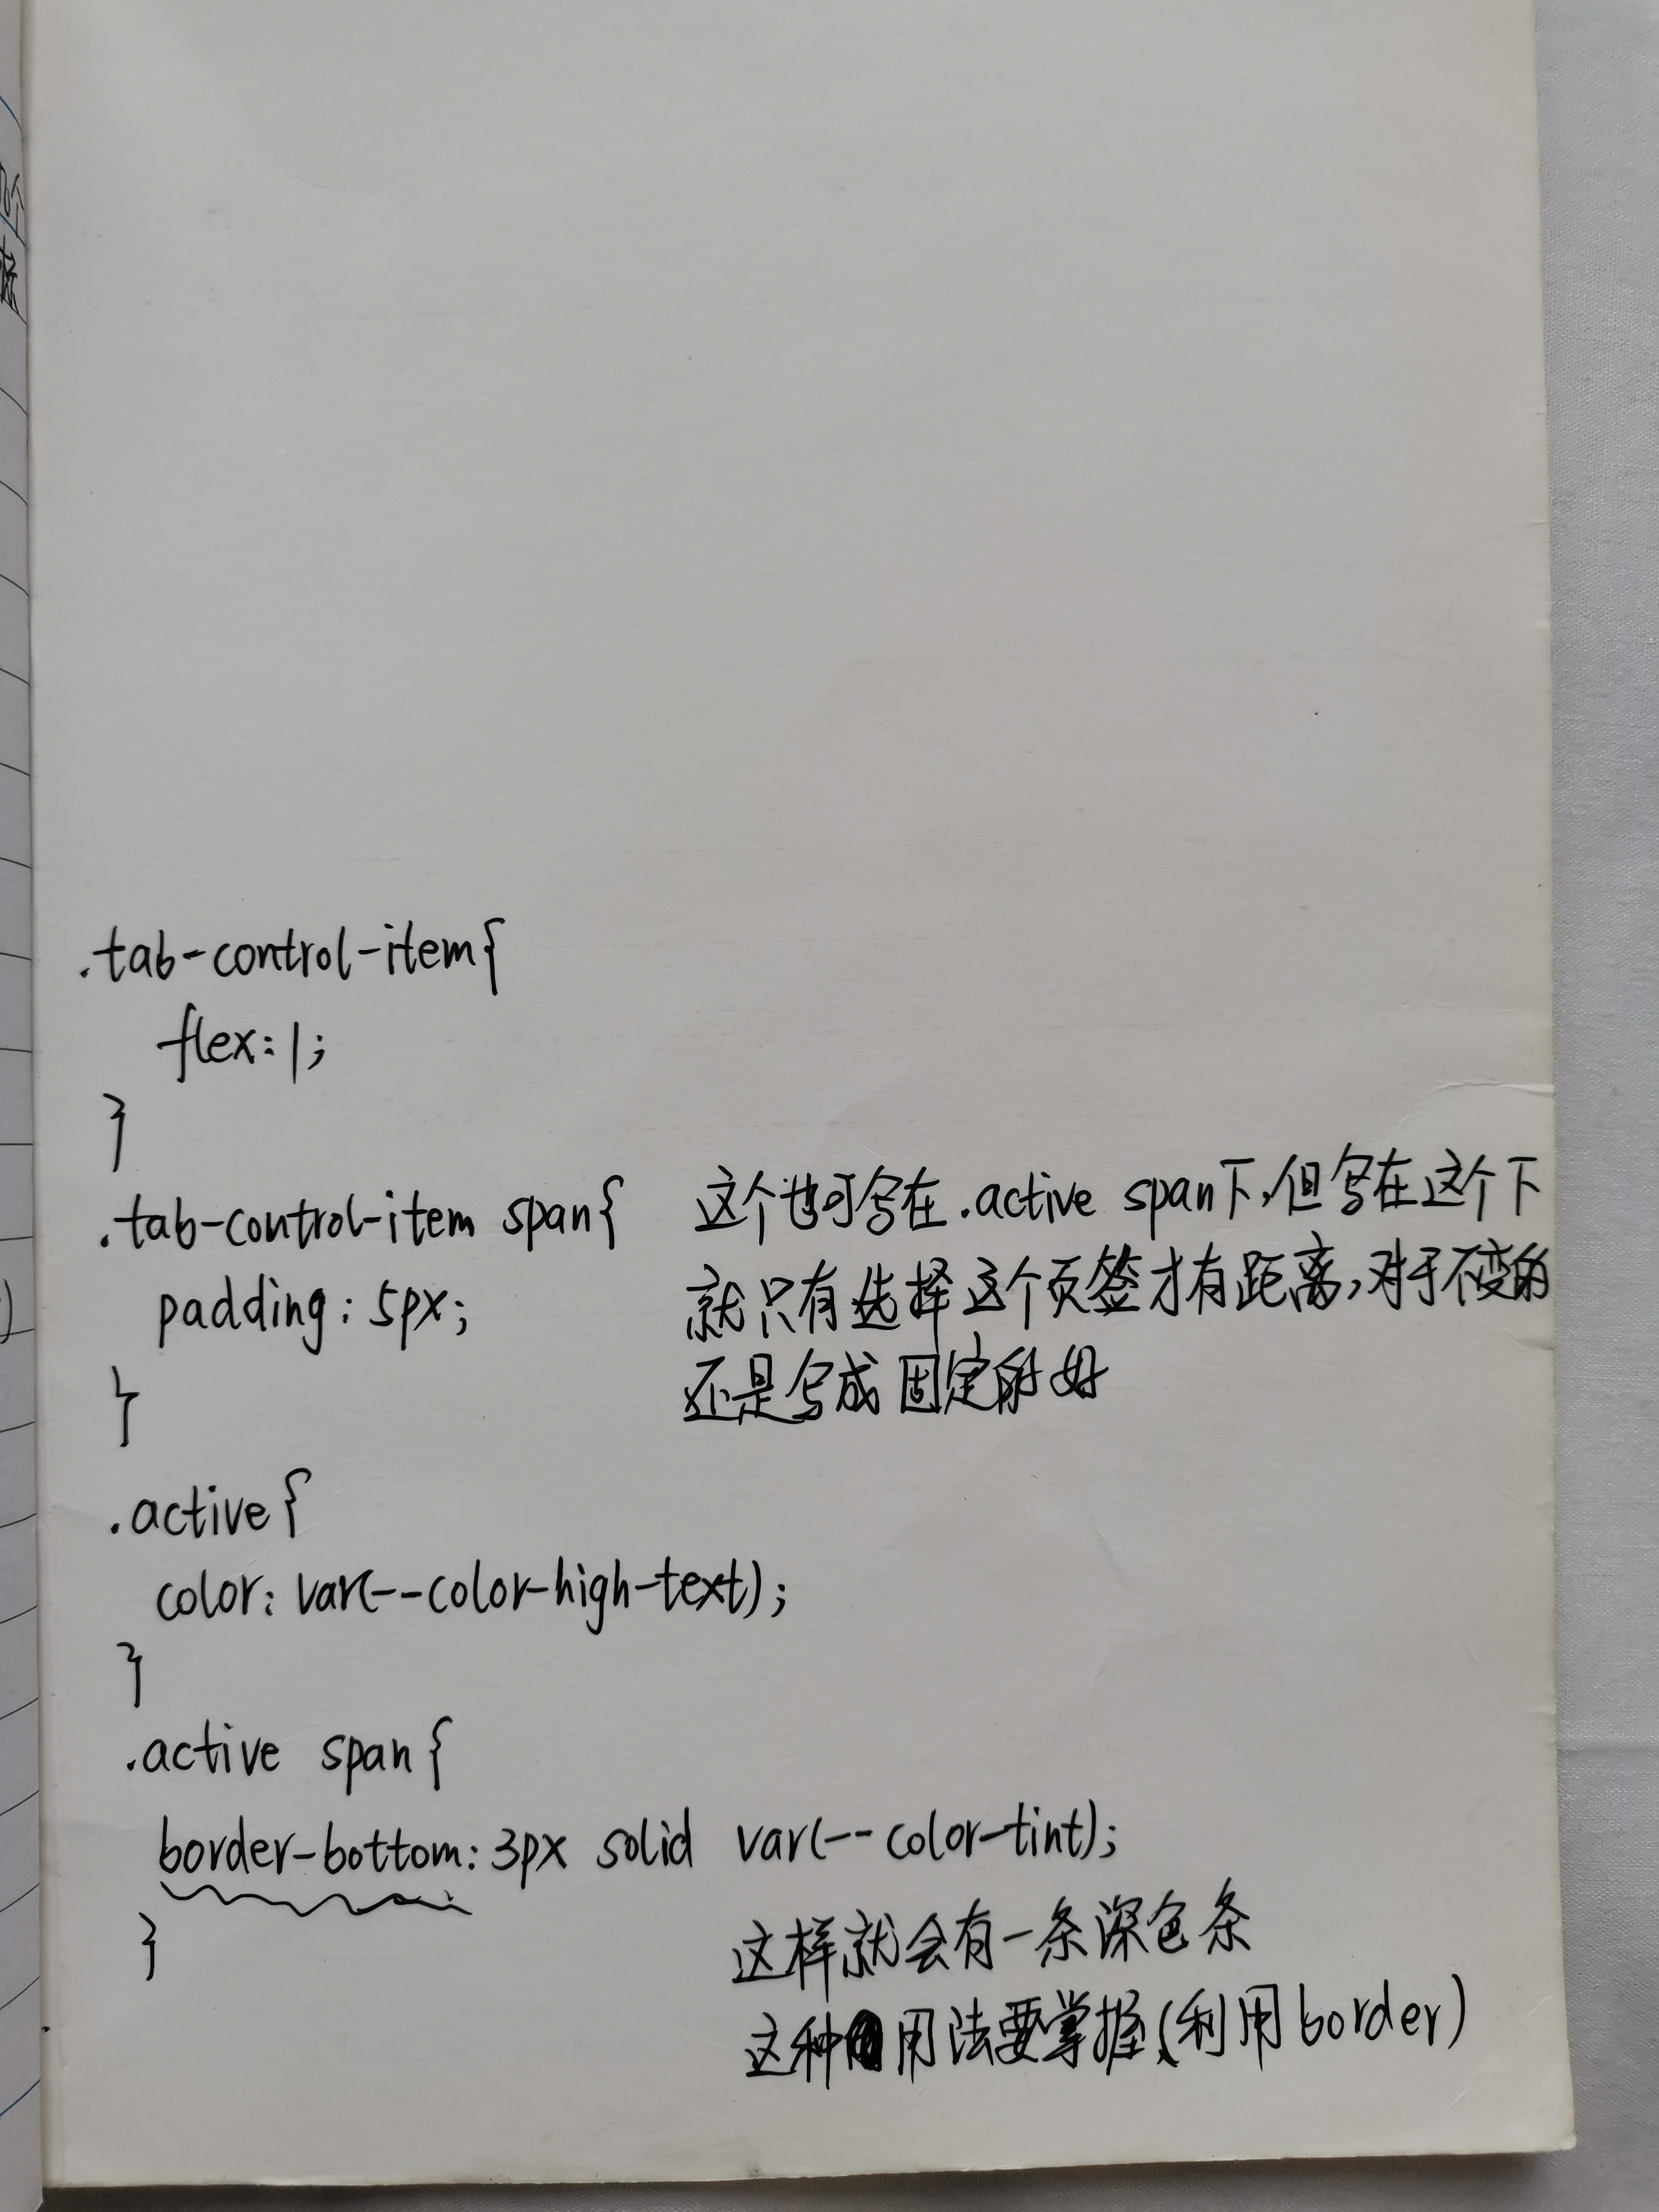 .tab-control-item{
flex:1;
}
.tab-control-item span{ 这个也可写在.active span下,但写在这个下
padding:5px; 就只有选择这个页签才有距离,对于不变的
} 还是写成固定的好
.active{
color:var(--color-high-text);
}
.active span{
border-bottom:3px solid var(--color-tint);
} 这样就会有一条深色条
这种用法要掌握(利用border)